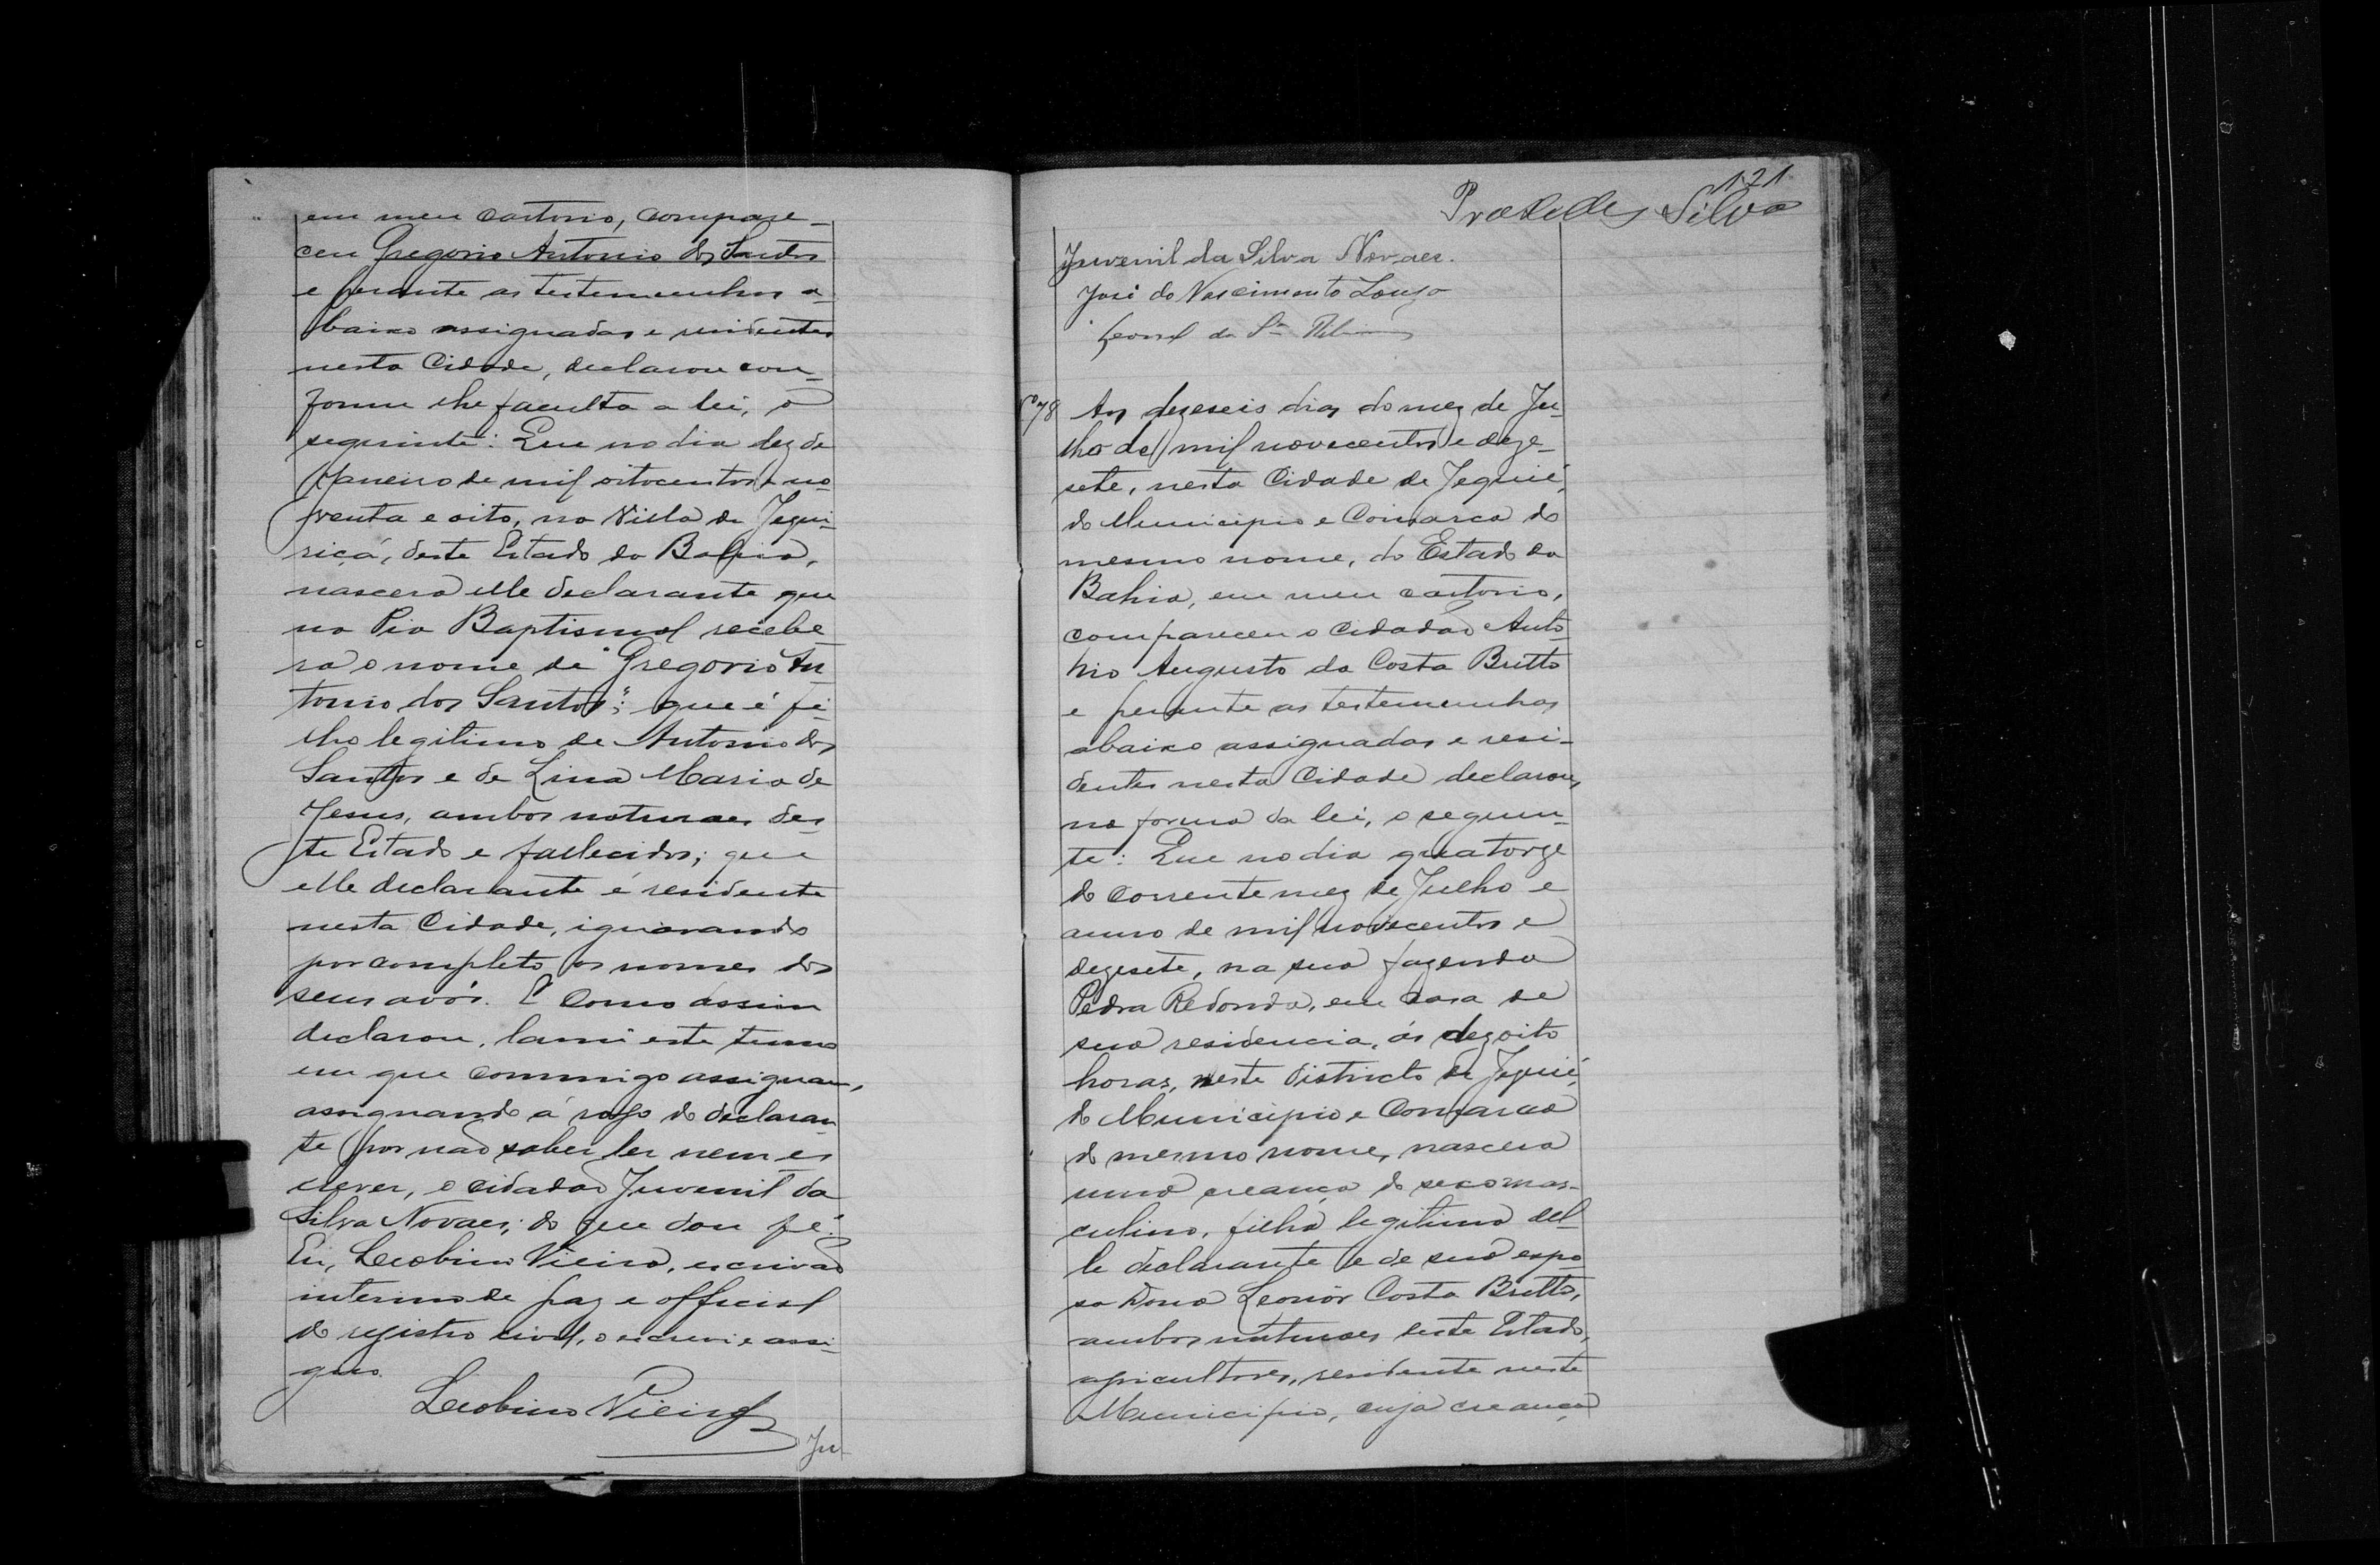 em meu cartorio, compare-
ceu Gregorio Antonio dos Santos
e perante as testemunhas a-
baixo assignadas e residentes
nesta Cidade, declarou con-
forme lhe faculta a lei, o
seguinte: Que no dia dez de
Janeiro de mil oitocentos e no-
venta e oito, na Villa de Jequi-
riçá, deste Estado da Bahia,
nascera elle declarante que
na Pia Baptismal recebe-
ra o nome de "Gregorio An-
tonio dos Santos"; que é fi-
lho legitimo de Antonio dos
Santos e de Lina Maria de
Jesus, ambos naturaes des-
te Estado e fallecidos; que
elle declarante é residente
nesta Cidade, ignorando
por completo os nomes dos
seus avós. E como assim
declarou, lavrei este termo
em que commigo assignam,
assignando á rogo do declaran-
te por não saber ler nem es-
crever, o cidadão Juvenil da
Silva Novaes; do que dou fé.
Eu, Leobino Vieira, escrivão
interino de paz e official
do registro civil, o escrevi e assi-
gno.
Leobino Vieira
Ju-
121
Silva
Juvenil da Silva Novaes.
José do Nascimento
Leonel da Sª
Nº 78 Aos dezeseis dias do mez de Ju-
lho de mil novecentos e deze-
sete, nesta Cidade de Jequié,
do Municipio e Comarca do
mesmo nome, do Estado da
Bahia, em meu cartorio,
compareceu o cidadão Anto-
nio Augusto da Costa Britto
e perante as testemunhas
abaixo assignadas e resi-
dentes nesta Cidade declarou,
na forma da lei, o seguin-
te: Que no dia quatorze
do corrente mez de Julho e
anno de mil novecentos e
dezesete, na sua fazenda
Pedra Redonda, em casa de
sua residencia, ás dezoito
horas, neste districto de Jequié,
do Municipio e Comarca
do mesmo nome, nascera
uma creança do sexo mas-
culino, filha legitima del-
le declarante e de sua espo-
sa Dona Leonôr Costa Britto,
ambos naturaes deste Estado,
agricultores, residente neste
Municipio, cuja creança